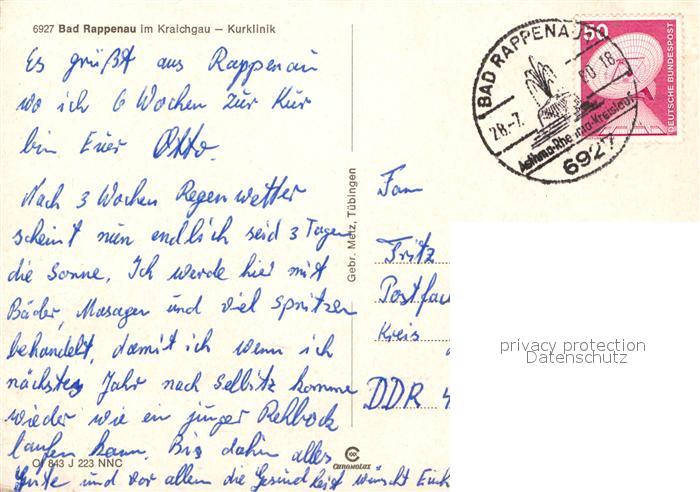 6927 Bad Rappenau im Kraichgau – Kurklinik
Es grüßt aus Rappenau
wo ich 6 Wochen zur Kur
bin Euer Otto.
Nach 3 Wochen Regenwetter
scheint nun endlich seid 3 Tagen
die Sonne. Ich werde hier mit
Bäder, Masagen und viel spritzen
behandelt, damit ich wenn ich
nächstes Jahr nach Selbitz komme
wieder wie ein junger Rehbock
laufen kann. Bis dahin alles
Gute und vor allem die Gesundheit wünscht Euch
OI 843 J 223 NNC
Gebr. Metz, Tübingen
CHROMOLUX
BAD RAPPENAU
28.-7. 80.18
Asthma-Rheuma-Kreislauf
6927
50
DEUTSCHE BUNDESPOST
Fam
Fritz
Postfach
Kreis
DDR 4
privacy protection
Datenschutz